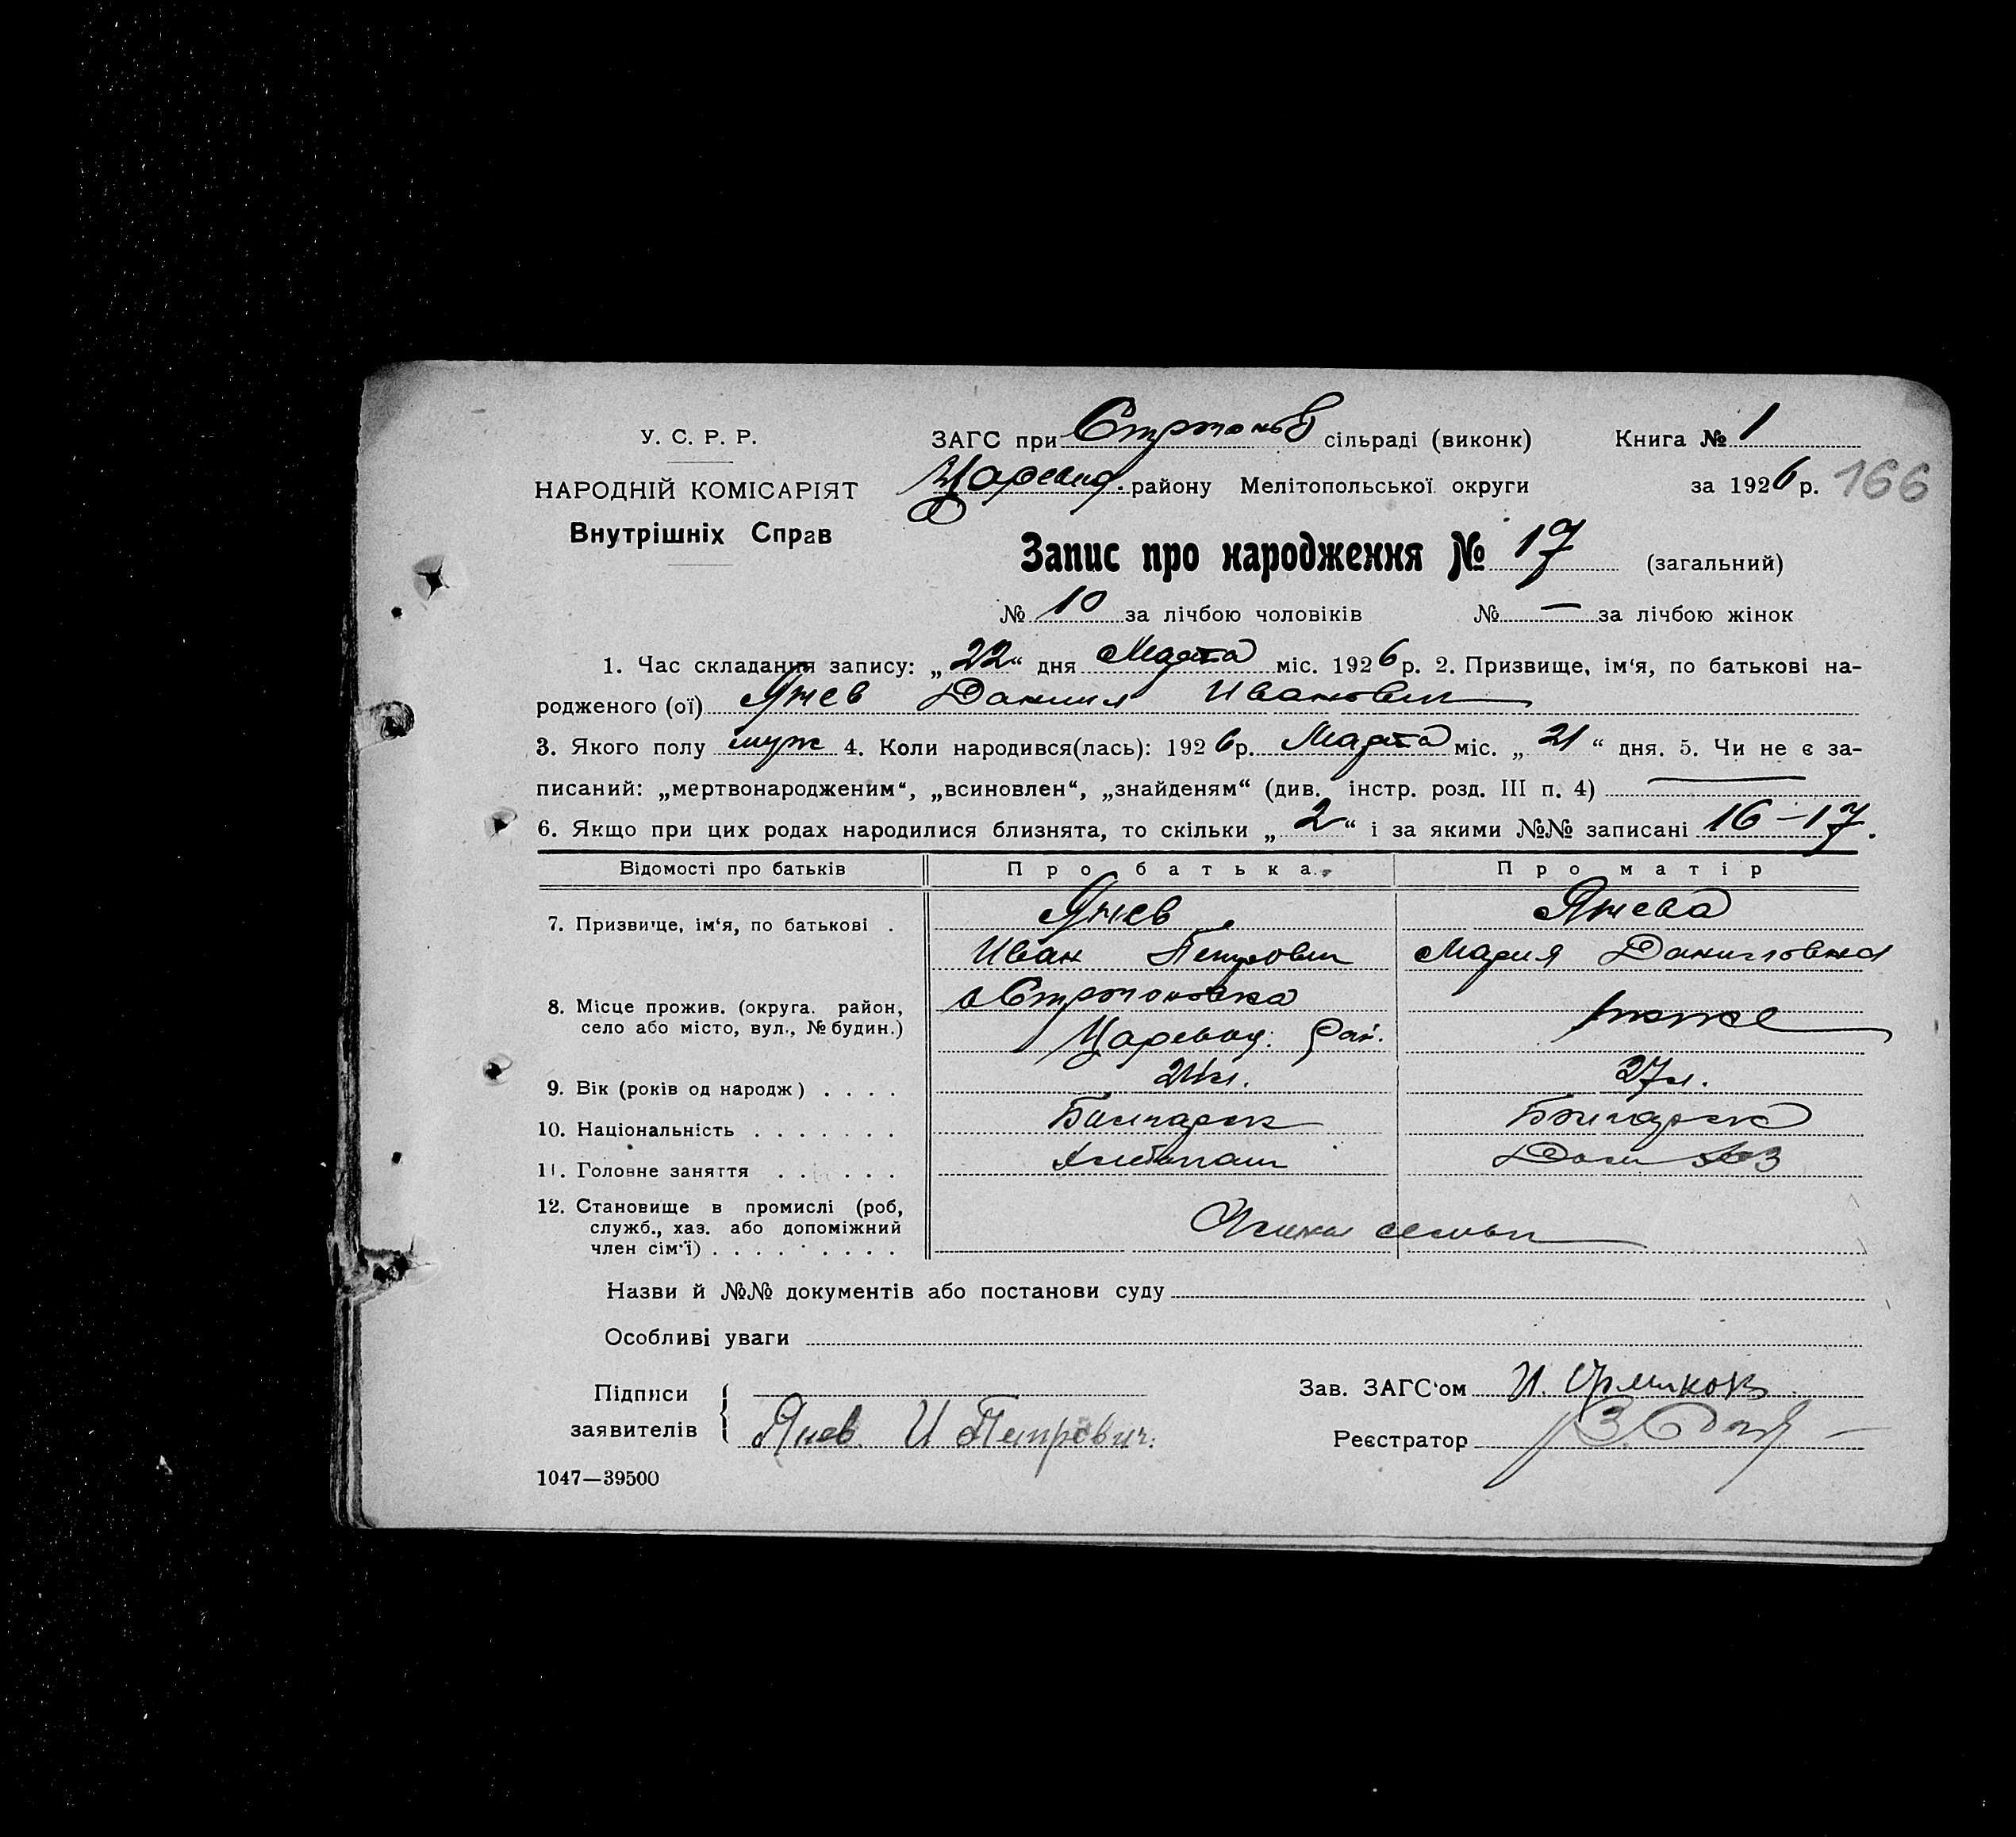 У. С. Р. Р.
НАРОДНІЙ КОМІСАРІЯТ
Внутрішніх Справ
ЗАГС при Строганов сільраді (виконк) Книга № 1
Царевод. району Мелітопольської округи за 1926 р. 166
Запис про народження № 17 (загальний)
№ 10 за лічбою чоловіків № — за лічбою жінок
1. Час складання запису: „22“ дня Марта міс. 1926 р. 2. Призвище, ім‘я, по батькові на-
родженого (ої) Янев Даниил Иванович
3. Якого полу муж 4. Коли народився(лась): 1926 р. Марта міс. „21“ дня. 5. Чи не є за-
писаний: „мертвонародженим“, „всиновлен“, „знайденям“ (див. інстр. розд. III п. 4) —
6. Якщо при цих родах народилися близнята, то скільки „2“ і за якими №№ записані 16–17.
Відомості про батьків Про батька Про матір
7. Призвище, ім‘я, по батькові . Янев Янева
Иван Петрович Мария Даниловна
8. Місце прожив. (округа. район, село або місто, вул., № будин.)
Царевод. Рай. тоже
9. Вік (років од народж) . . . . 27 л.
10. Національність . . . . . . . Болгарск Болгарска
11. Головне заняття . . . . . . Хлебопаш Дом хоз
12. Становище в промислі (роб, служб., хаз. або допоміжний член сім‘ї) . . . . . . . . . семьи
Назви й №№ документів або постанови суду
Особливі уваги
Підписи заявителів Янев И Петрович.
Зав. ЗАГС‘ом И.
Реєстратор
1047—39500